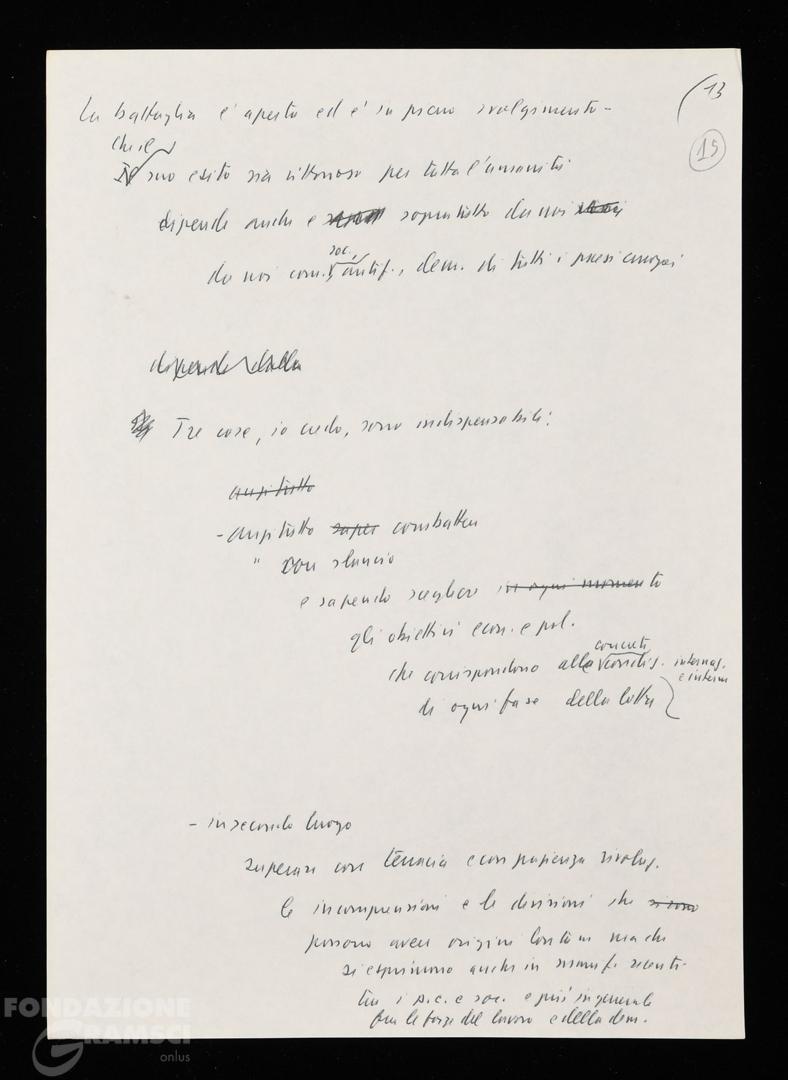 13
15
La battaglia è aperta ed è in pieno svolgimento -
che il
Il suo esito sia vittorioso per tutta l'umanità
dipende anche e soprattutto da noi
soc.,
da noi com., antif., dem. di tutti i paesi europei
dipende dalla
Tre cose, io credo, sono indispensabili:
anzitutto
- anzitutto saper combattere
" con slancio
e sapendo scegliere in ogni momento
gli obiettivi econ. e pol.
concrete
che corrispondono alle condiz. internaz.
e interne
di ogni fase della lotta
- in secondo luogo
superare con tenacia e con pazienza rivoluz.
le incomprensioni e le divisioni che si sono
possono avere origini lontane ma che
si esprimono anche in manif. recenti
tra i p.c. e soc. e più in generale
fra le forze del lavoro e della dem.
FONDAZIONE
GRAMSCI
onlus